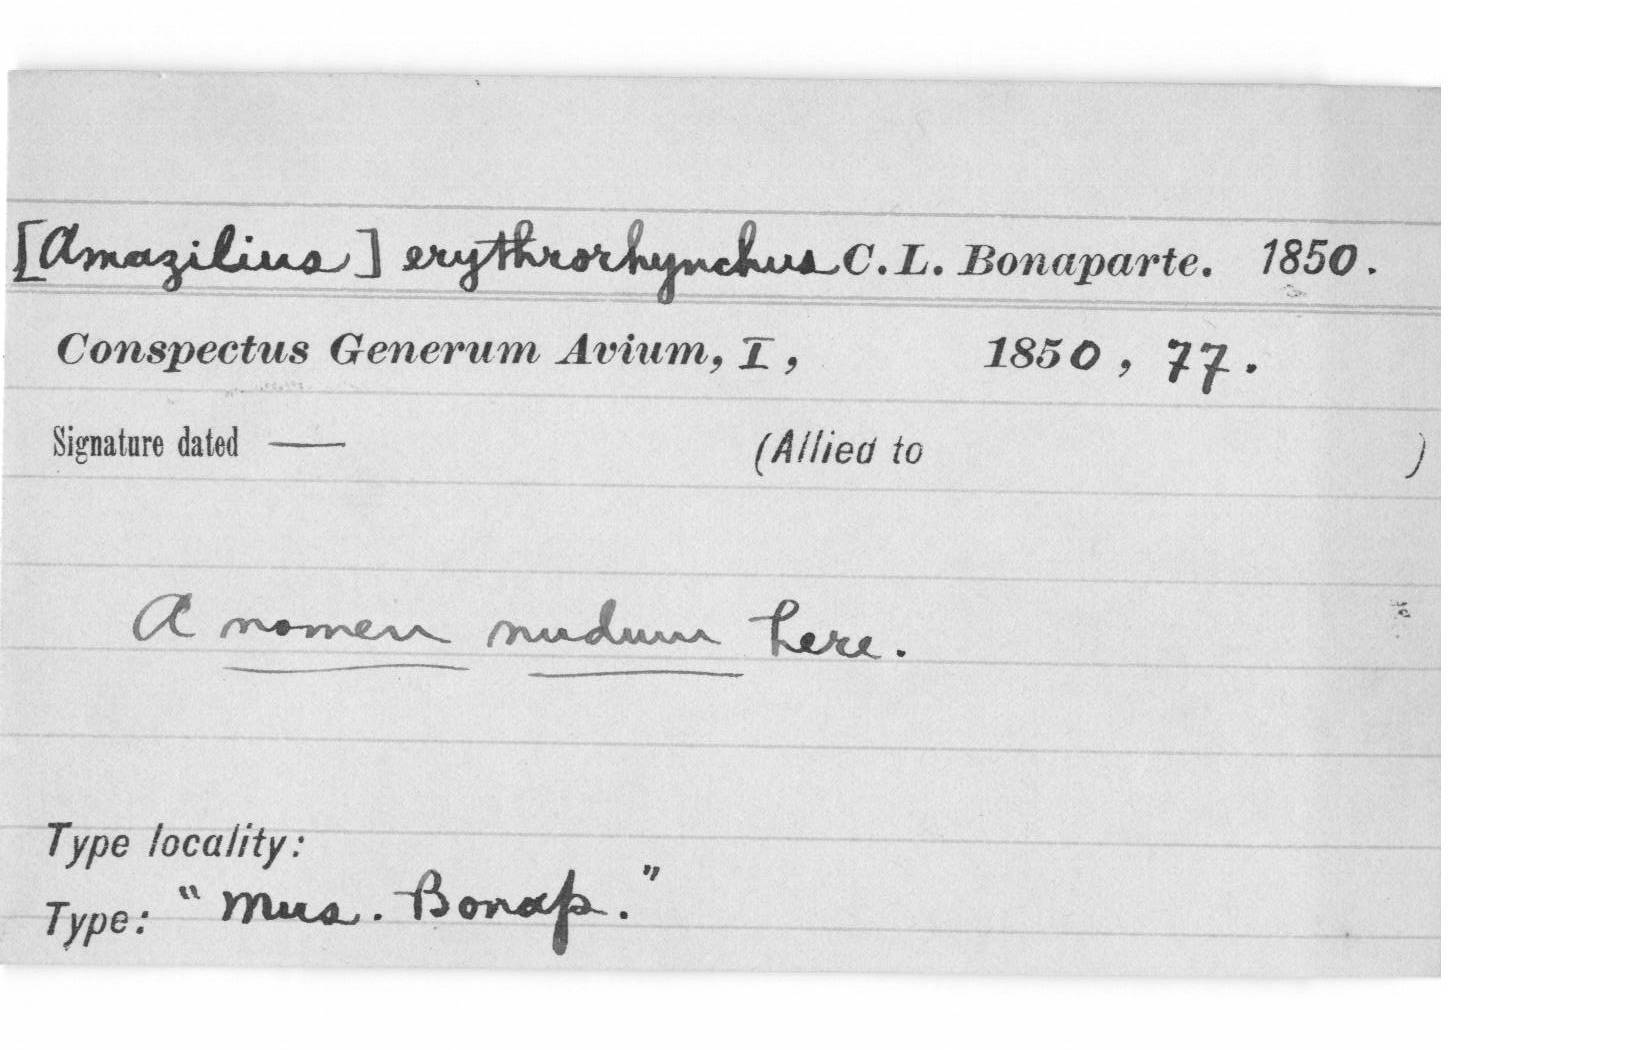 [Amazilius] erythrorhynchus C. L. Bonaparte. 1850.
Conspectus Generum Avium, I, 1850, 77.
Signature dated — (Allied to )
A nomen nudum here.
Type locality:
Type: "Mus. Bonap."